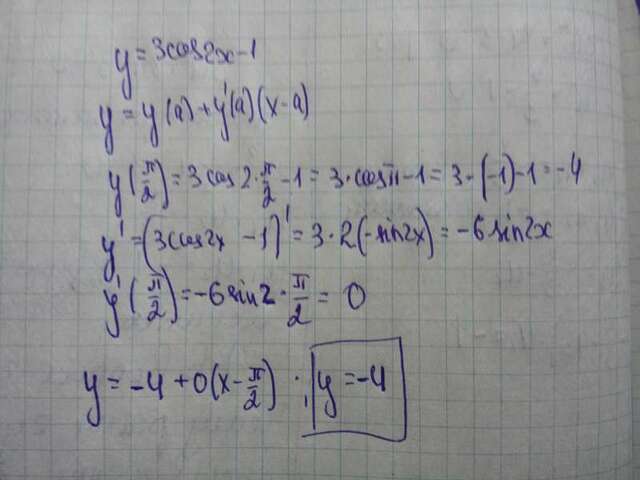 y = 3cos2x - 1
y = y(a) + y'(a)(x - a)
y(π/2) = 3cos2·π/2 - 1 = 3·cosπ - 1 = 3·(-1) - 1 = -4
y' = (3cos2x - 1)' = 3·2(-sin2x) = -6sin2x
y'(π/2) = -6sin2·π/2 = 0
y = -4 + 0(x - π/2) ; y = -4